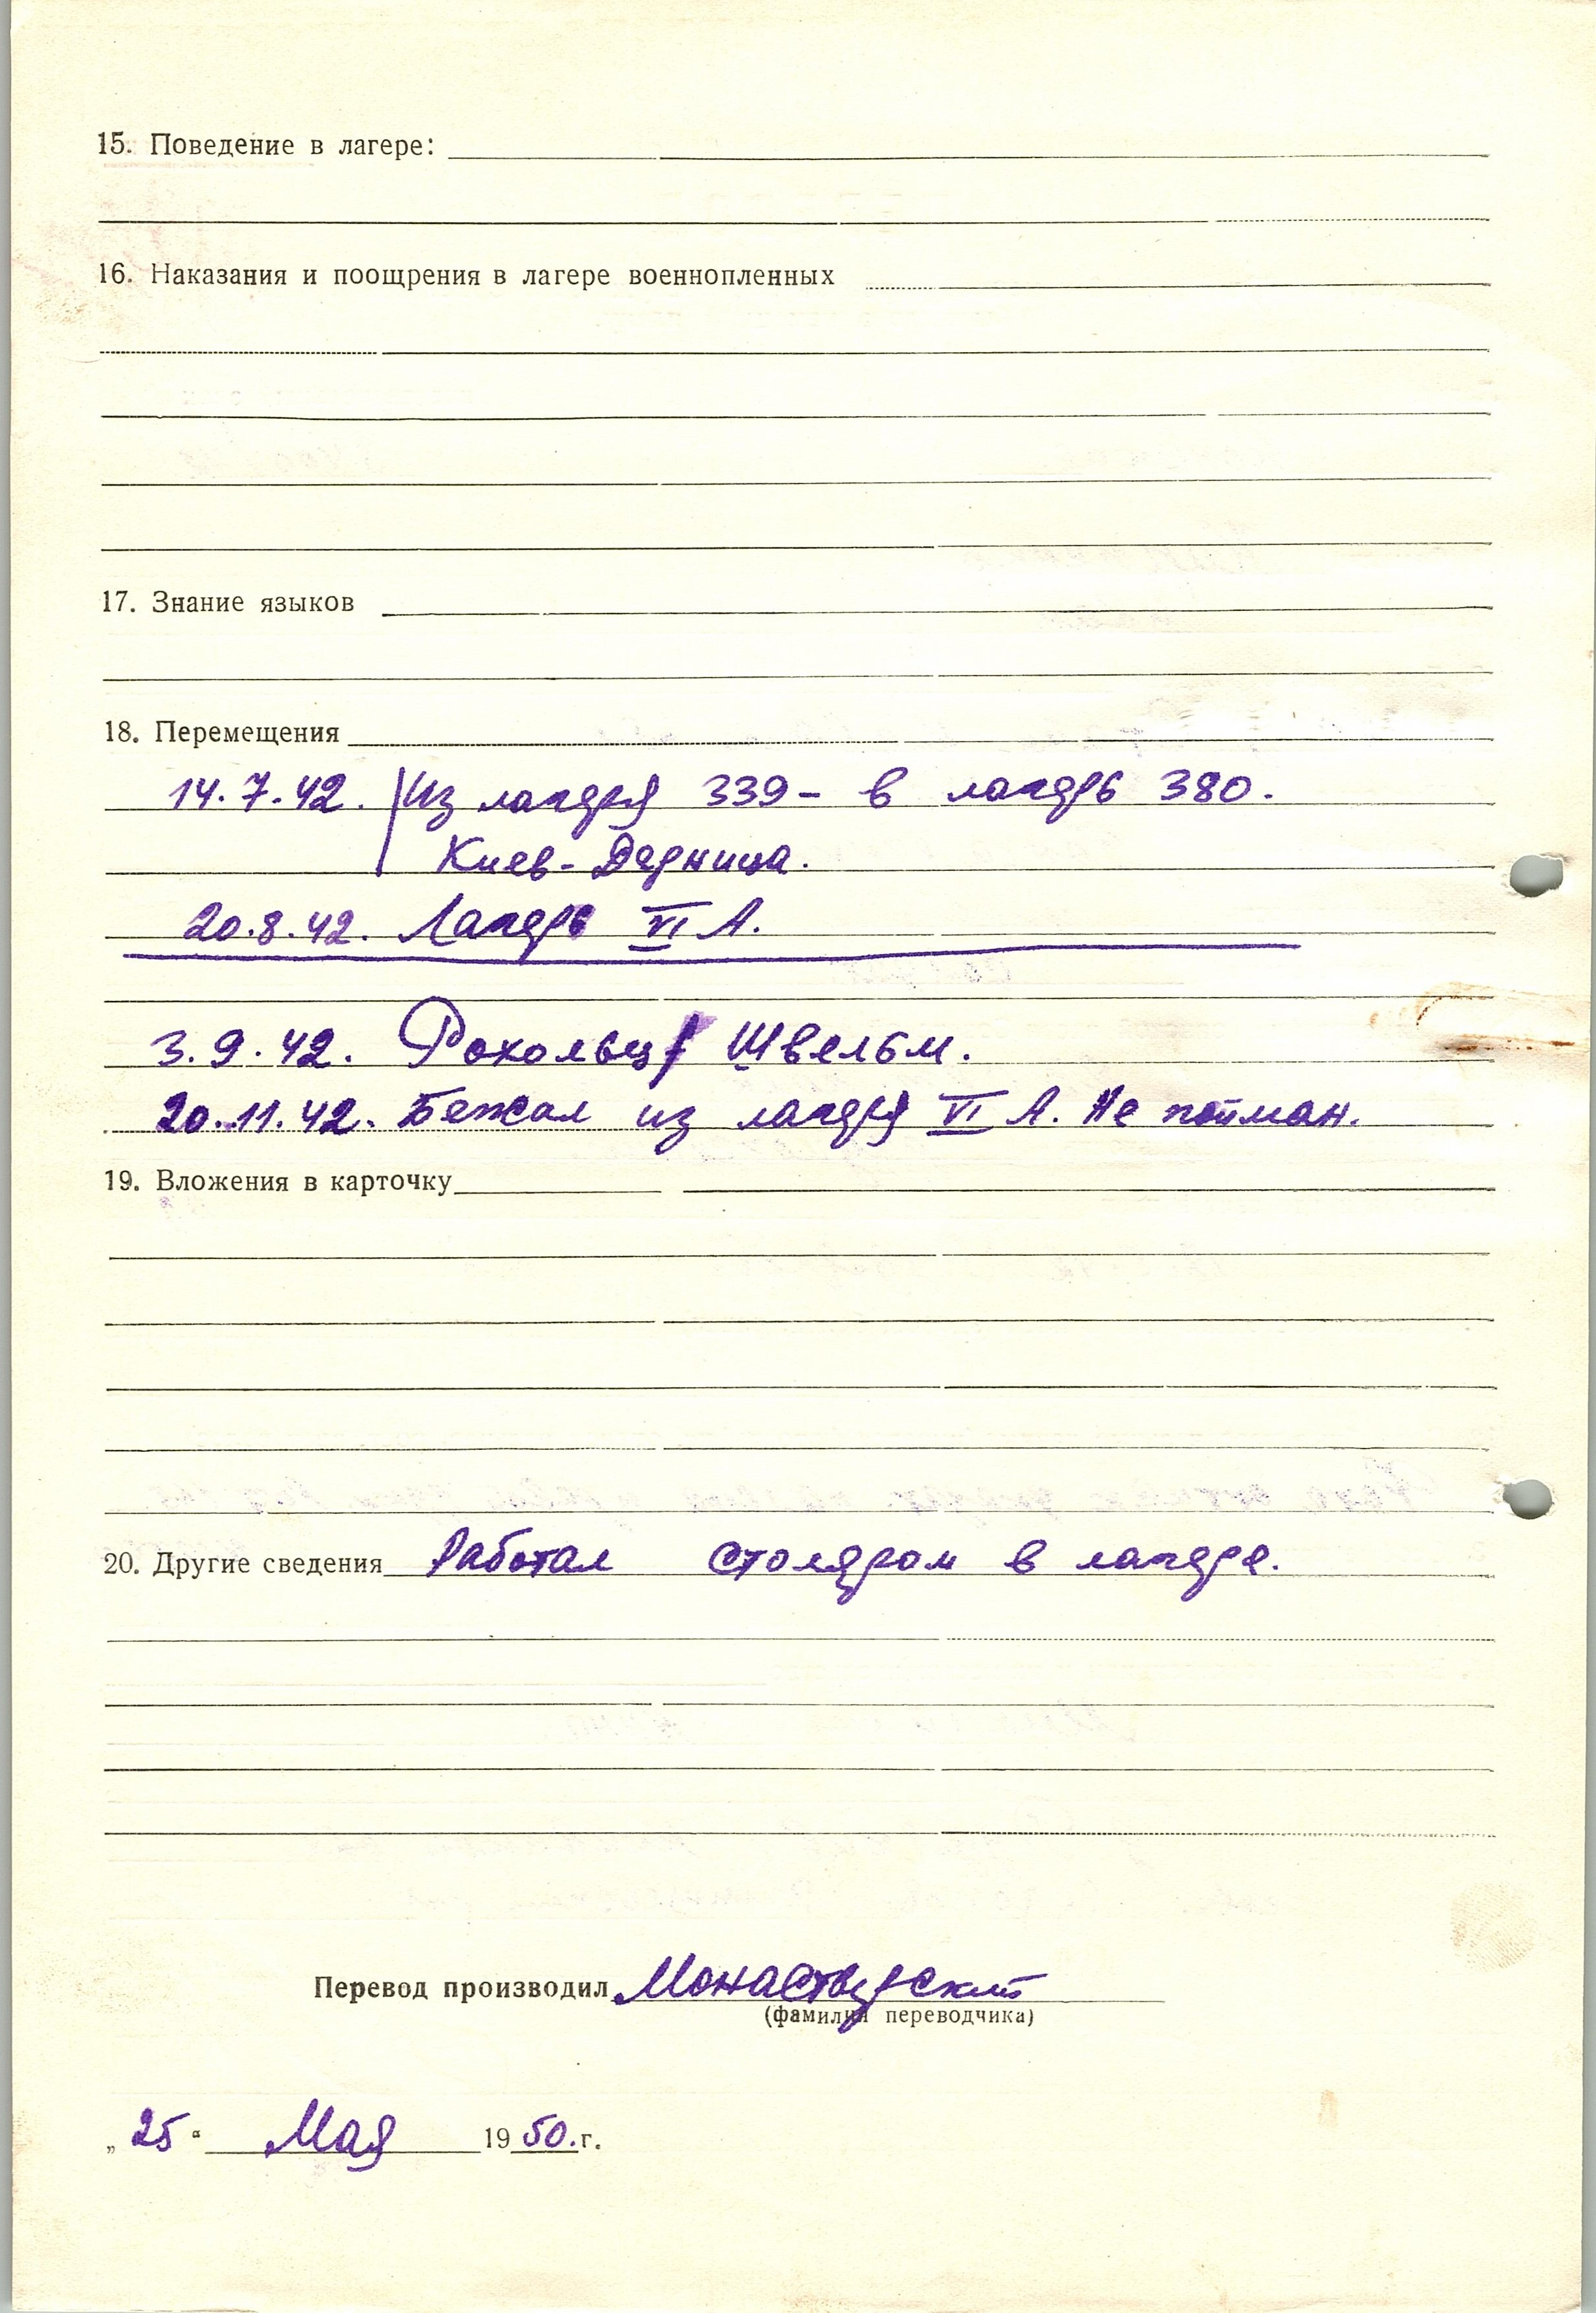 15. Поведение в лагере:
16. Наказания и поощрения в лагере военнопленных
17. Знание языков
18. Перемещения
14.7.42. Из лагеря 339 - в лагерь 380.
Киев-Дарница.
20.8.42. Лагерь VI А.
3.9.42. Швельм.
20.11.42. Бежал из лагеря VI А. Не пойман.
19. Вложения в карточку
20. Другие сведения Работал столяром в лагере.
Перевод производил Монастырский
(фамилия переводчика)
„25“ Мая 1950.г.